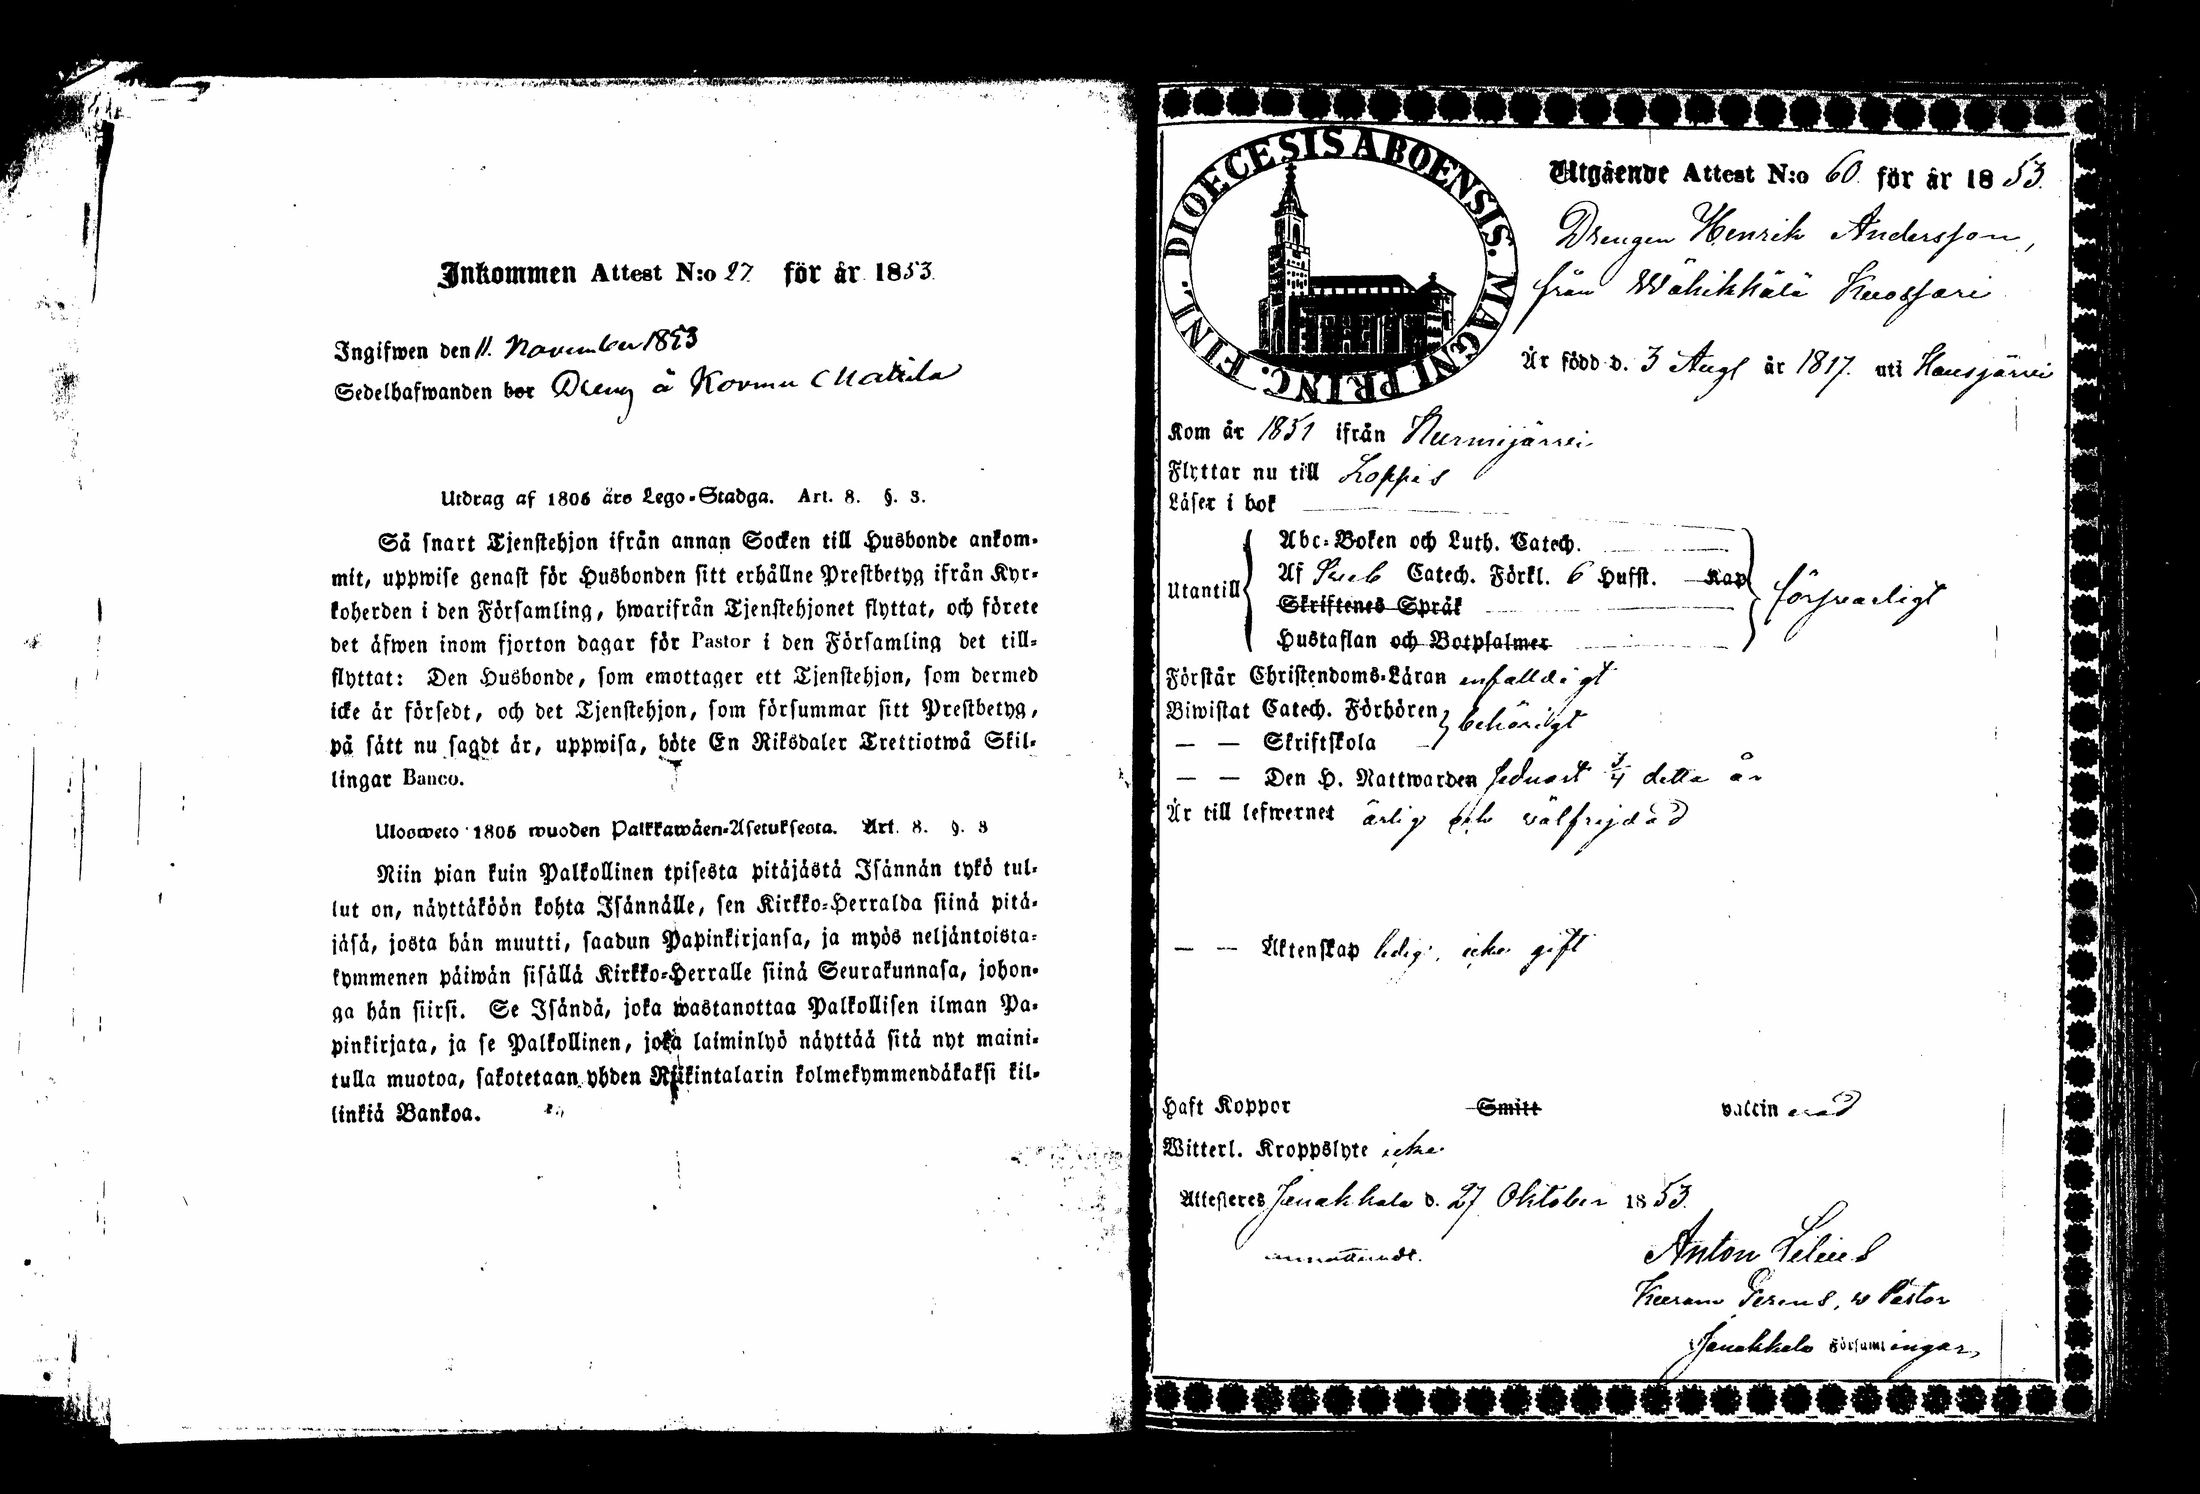 Inkommen Attest N:o 27 för år 1853.
Ingifwen den 11. November 1853
Sedelhafwanden bor Dreng å Kormu Mattila
Utdrag af 1805 års Lego-Stadga. Art. 8. §. 3.
Så snart Tjenstehjon ifrån annan Socken till Husbonde ankom-
mit, uppwise genast för Husbonden sitt erhållne Prestbetyg ifrån Kyr-
koherden i den Församling, hwarifrån Tjenstehjonet flyttat, och förete
det äfwen inom fjorton dagar för Pastor i den Församling det till-
flyttat: Den Husbonde, som emottager ett Tjenstehjon, som dermed
icke är försedt, och det Tjenstehjon, som försummar sitt Prestbetyg,
på sätt nu sagdt är, uppwisa, böte En Riksdaler Trettiotwå Skil-
lingar Banco.
Ulosweto 1805 wuoden Palkkawäen-Asetuksesta. Art. 8. §. 3
Niin pian kuin Palkollinen tpisesta pitäjästä Isännän tykö tul-
lut on, näyttäköön kohta Isännälle, sen Kirkko-Herralda siinä pitä-
jäsä, josta hän muutti, saadun Papinkirjansa, ja myös neljäntoista-
kymmenen päiwän sisällä Kirkko-Herralle siinä Seurakunnasa, johon-
ga hän siirsi. Se Isändä, joka wastanottaa Palkollisen ilman Pa-
pinkirjata, ja se Palkollinen, joka laiminlyö näyttää sitä nyt maini-
tulla muotoa, sakotetaan yhden Riikintalarin kolmekymmendäkaksi kil-
linkiä Bankoa.
DIOECESIS ABOENSIS. MAGNI PRINC. FINL.
Utgående Attest N:o 60 för år 1853.
Drengen Henrik Andersson,
från Wähikkälä Kuossari
Är född d. 3 Aug år 1817. uti Hausjärvi
Kom år 1851 ifrån Nurmijärvi
Flyttar nu till Loppis
Läser i bok
Abc-Boken och Luth. Catech.
Utantill Af Sveb Catech. Förkl. 6 Hufst. Kap försvarligt
Skriftenes Språk
Hustaflan och Botpsalmer
Förstår Christendoms-Läran enfaldigt
Biwistat Catech. Förhören behörigt
— — Skriftskola
— — Den H. Nattwarden sednast 3/4 detta år
Är till lefwernet ärlig och välfrejdad
— — Äktenskap ledig, icke gift
Haft Koppor Smitt vaccinerad
Witterl. Kroppslyte icke
Attesteres Janakkala d. 27 Oktober 1853.
Anton Lilius
Pastor
Janakkala Församlingar